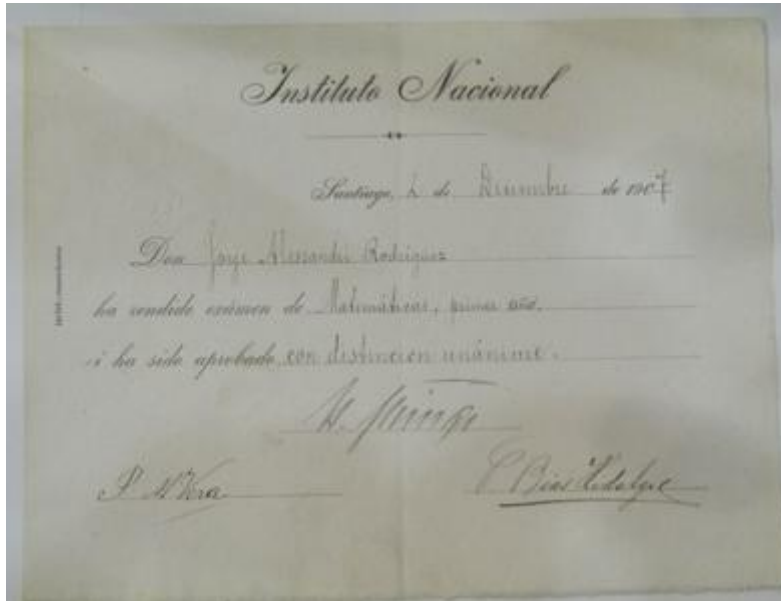 Instituto Nacional
Santiago, 2 de Diciembre de 1907
Don Jorge Alessandri Rodriguez
ha rendido exámen de Matemáticas, primer año.
i ha sido aprobado con distincion unánime.